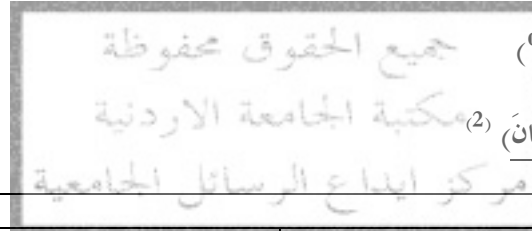 جميع الحقوق محفوظة
مكتبة الجامعة الاردنية (2)
مركز ايداع الرسائل الجامعية